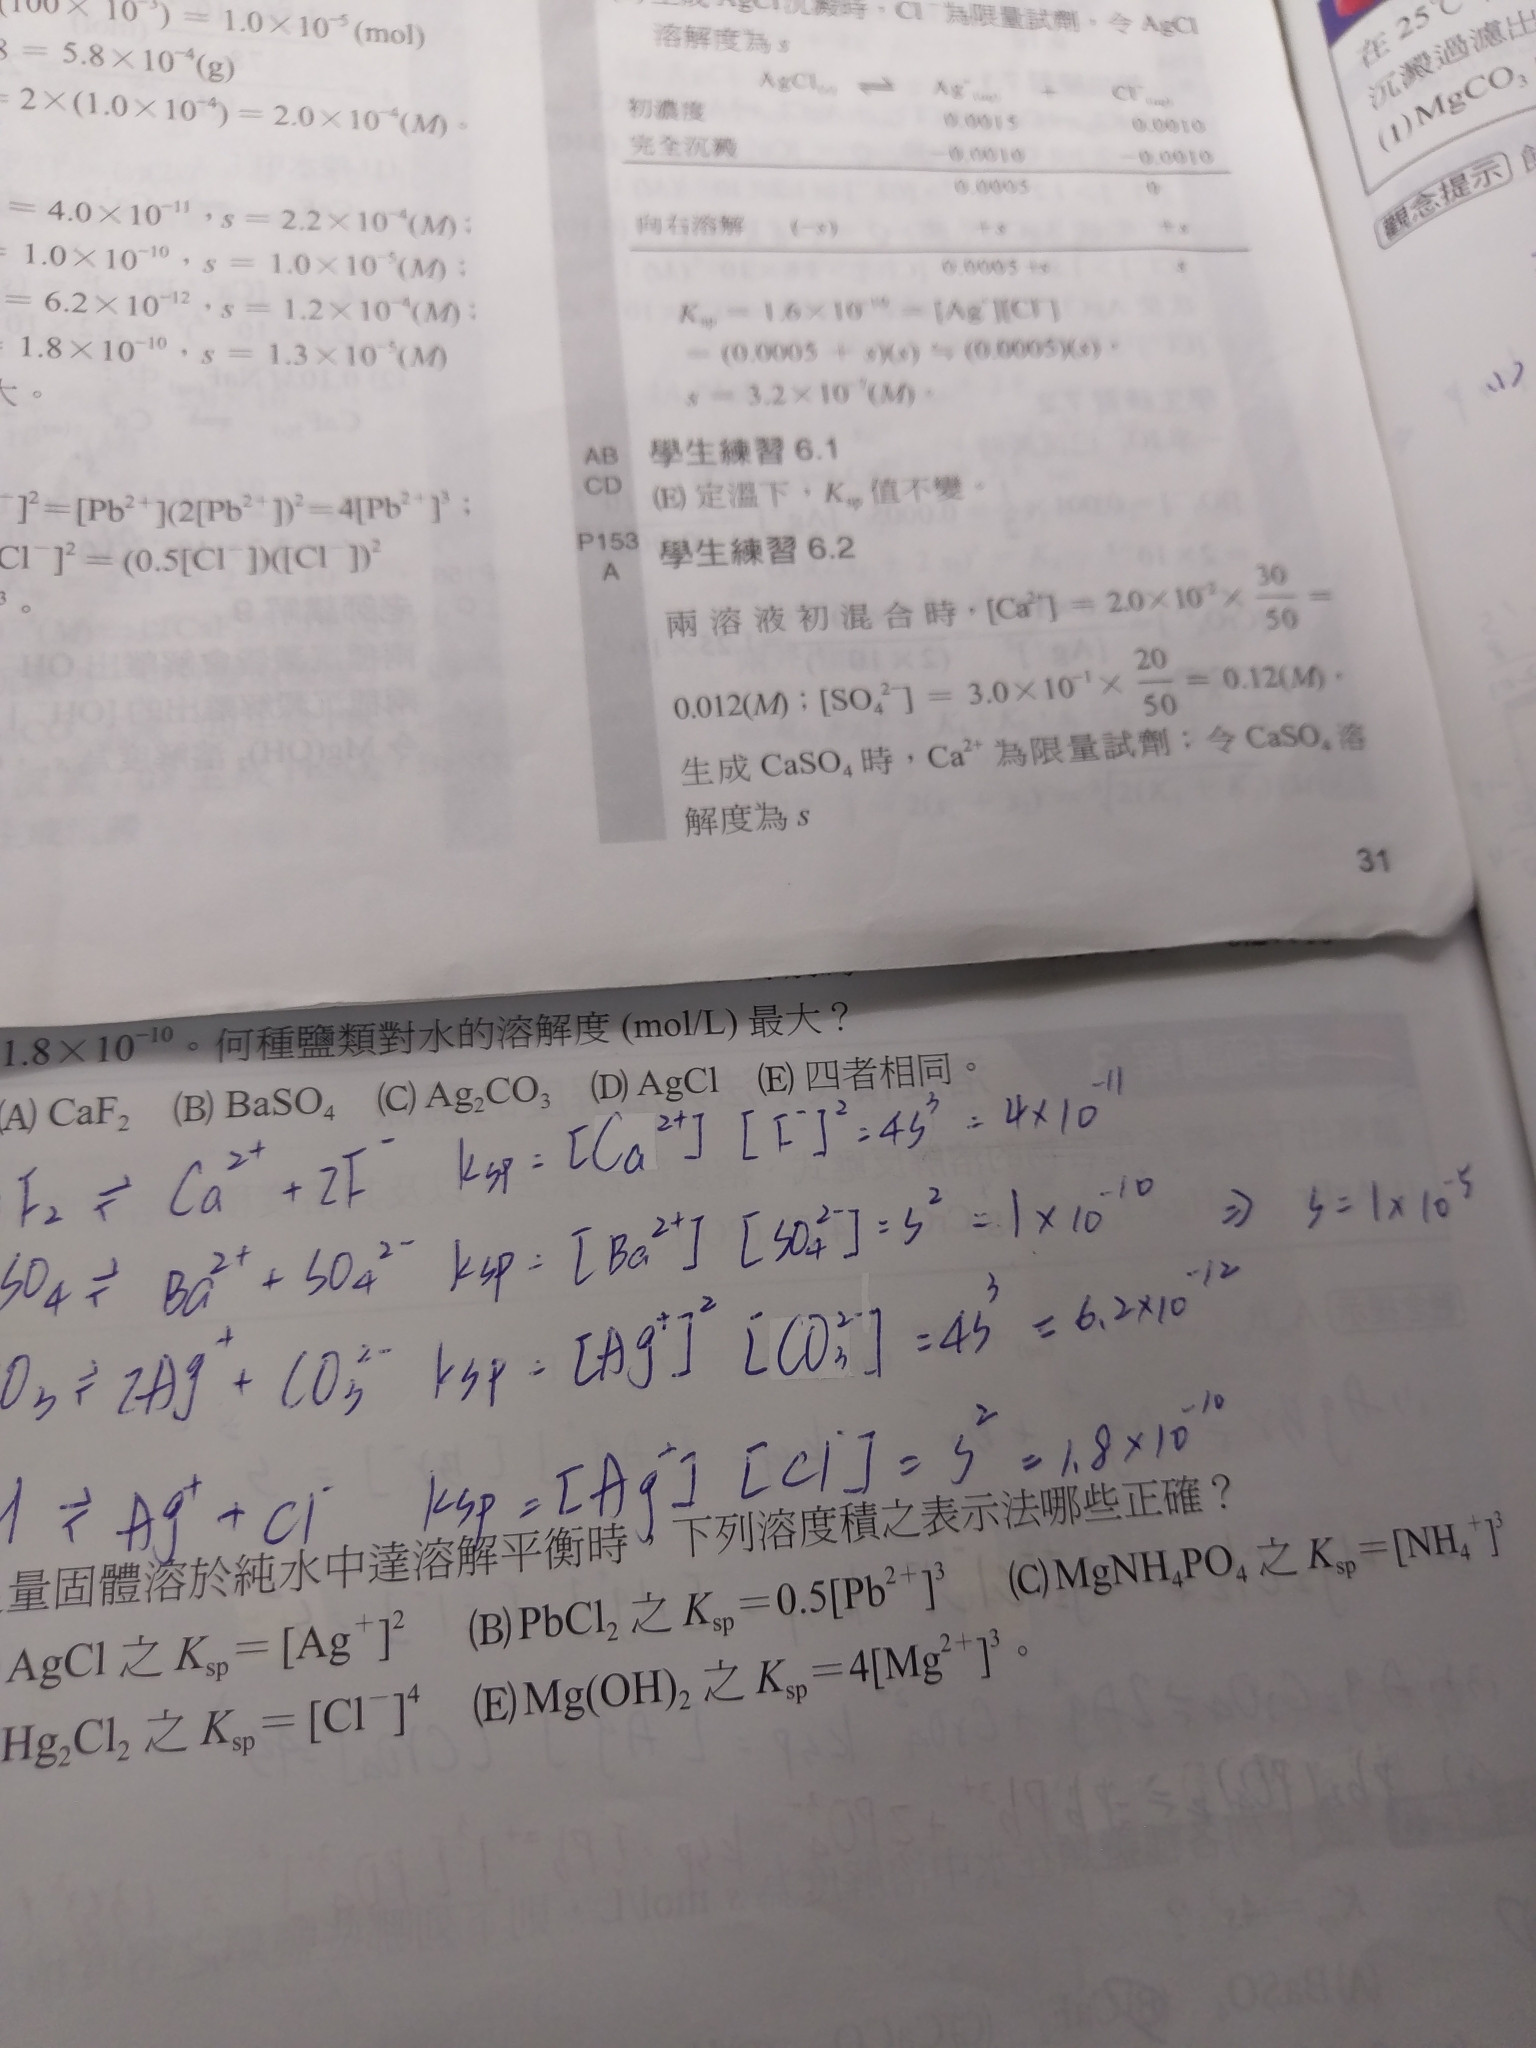 (100×10⁻³) = 1.0×10⁻⁵(mol)
8 = 5.8×10⁻⁴(g)
= 2×(1.0×10⁻⁴) = 2.0×10⁻⁴(M)。
= 4.0×10⁻¹¹,s = 2.2×10⁻⁴(M);
= 1.0×10⁻¹⁰,s = 1.0×10⁻⁵(M);
= 6.2×10⁻¹²,s = 1.2×10⁻⁴(M);
= 1.8×10⁻¹⁰,s = 1.3×10⁻⁵(M)
大。
⁻]²=[Pb²⁺](2[Pb²⁺])²=4[Pb²⁺]³;
Cl⁻]²=(0.5[Cl⁻])([Cl⁻])²
³。
生成AgCl沉澱時,Cl⁻為限量試劑,令AgCl
溶解度為s
AgCl ⇌ Ag⁺(aq) + Cl⁻(aq)
初濃度 0.0015 0.0010
完全沉澱 −0.0010 −0.0010
0.0005 0
向右溶解 (−s) +s +s
0.0005+s s
Ksp = 1.6×10⁻¹⁰ = [Ag⁺][Cl⁻]
= (0.0005 + s)(s) ≒ (0.0005)(s),
s = 3.2×10⁻⁷(M)。
AB 學生練習 6.1
CD (E) 定溫下,Ksp 值不變。
P153 學生練習 6.2
A
兩溶液初混合時,[Ca²⁺] = 2.0×10⁻²×30/50 =
0.012(M);[SO₄²⁻] = 3.0×10⁻¹×20/50 = 0.12(M),
生成CaSO₄時,Ca²⁺為限量試劑;令CaSO₄溶
解度為s
31
在 25℃
沉澱過濾出
(1)MgCO₃
觀念提示
1.8×10⁻¹⁰。何種鹽類對水的溶解度 (mol/L) 最大?
(A) CaF₂ (B) BaSO₄ (C) Ag₂CO₃ (D) AgCl (E) 四者相同。
F₂ ⇌ Ca²⁺ + 2F⁻ ksp = [Ca²⁺] [F⁻]² = 4s³ = 4×10⁻¹¹
SO₄ ⇌ Ba²⁺ + SO₄²⁻ ksp = [Ba²⁺] [SO₄²⁻] = s² = 1×10⁻¹⁰ ⇒ s = 1×10⁻⁵
O₃ ⇌ 2Ag⁺ + CO₃²⁻ ksp = [Ag⁺]² [CO₃²⁻] = 4s³ = 6.2×10⁻¹²
l ⇌ Ag⁺ + Cl⁻ ksp = [Ag⁺] [Cl⁻] = s² = 1.8×10⁻¹⁰
量固體溶於純水中達溶解平衡時,下列溶度積之表示法哪些正確?
AgCl 之 Ksp=[Ag⁺]² (B)PbCl₂ 之 Ksp=0.5[Pb²⁺]³ (C)MgNH₄PO₄ 之 Ksp=[NH₄⁺]³
Hg₂Cl₂ 之 Ksp=[Cl⁻]⁴ (E)Mg(OH)₂ 之 Ksp=4[Mg²⁺]³。